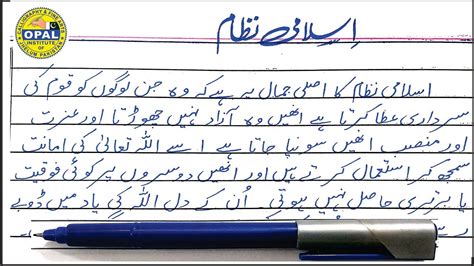 CALLIGRAPHY & FINE ARTS
OPAL
INSTITUTE OF
JHELUM PAKISTAN
اسلامی نظام
اسلامی نظام کا اصلی جمال یہ ہے کہ وہ جن لوگوں کو قوم کی
سرداری عطا کرتا ہے انھیں وہ آزاد نہیں چھوڑتا اور عزت
اور منصب انھیں سونپا جاتا ہے اسے اللہ تعالیٰ کی امانت
سمجھ کر استعمال کرتے ہیں اور انھیں دوسروں پر کوئی فوقیت
یا برتری حاصل نہیں ہوتی۔ اُن کے دل اللہ کی یاد میں ڈوبے